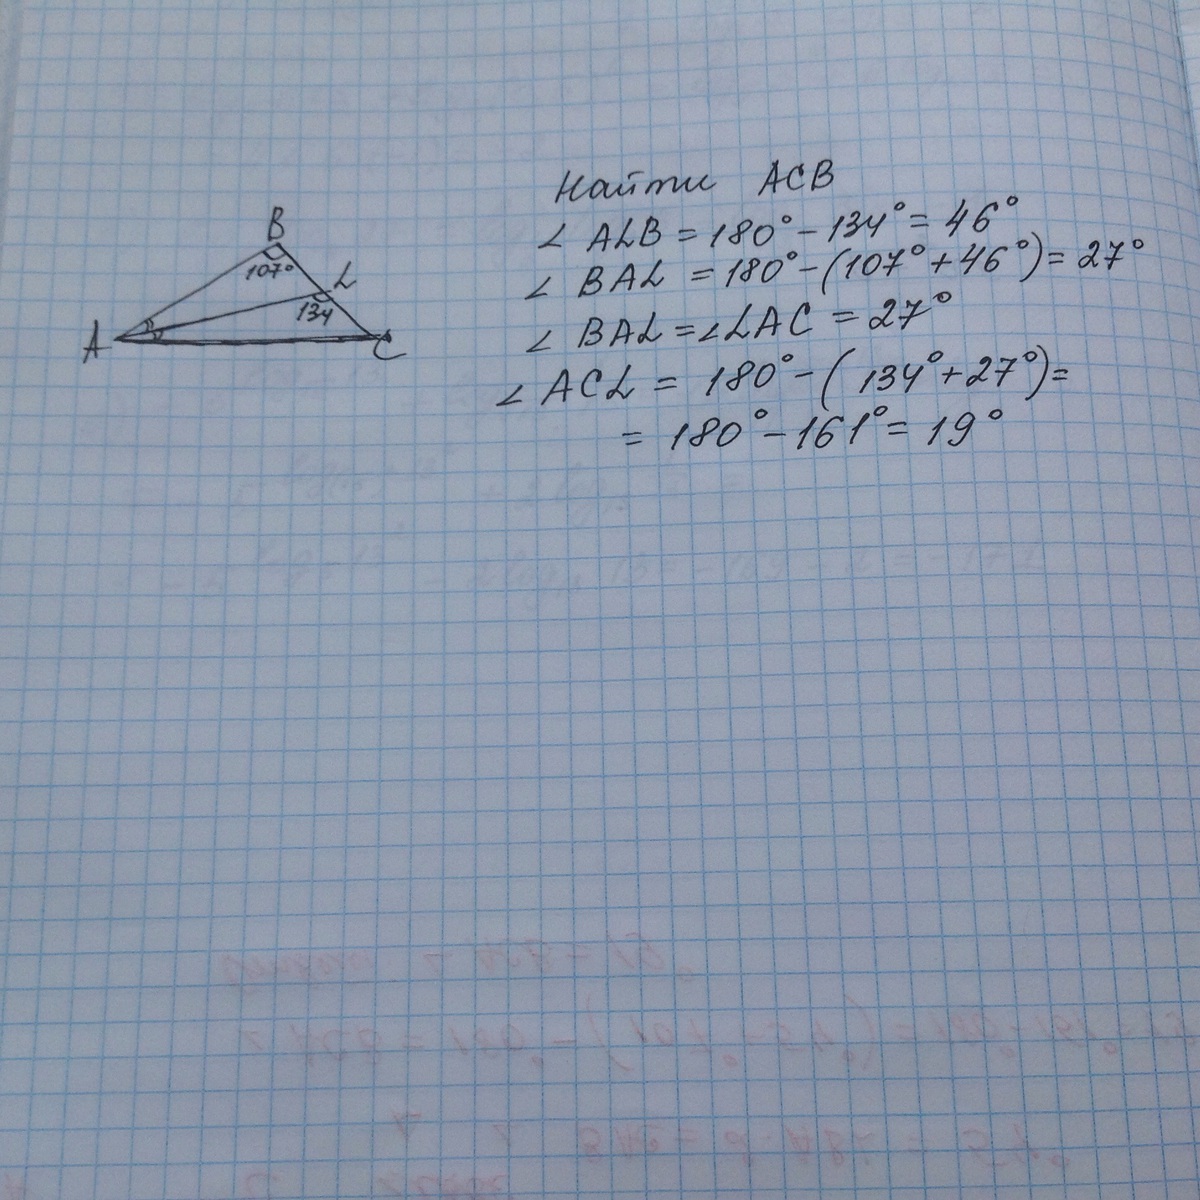 Найти ACB
∠ ALB = 180° - 134° = 46°
∠ BAL = 180° - (107° + 46°) = 27°
∠ BAL = ∠LAC = 27°
∠ ACL = 180° - (134° + 27°) =
= 180° - 161° = 19°
B
107°
L
134
A
C